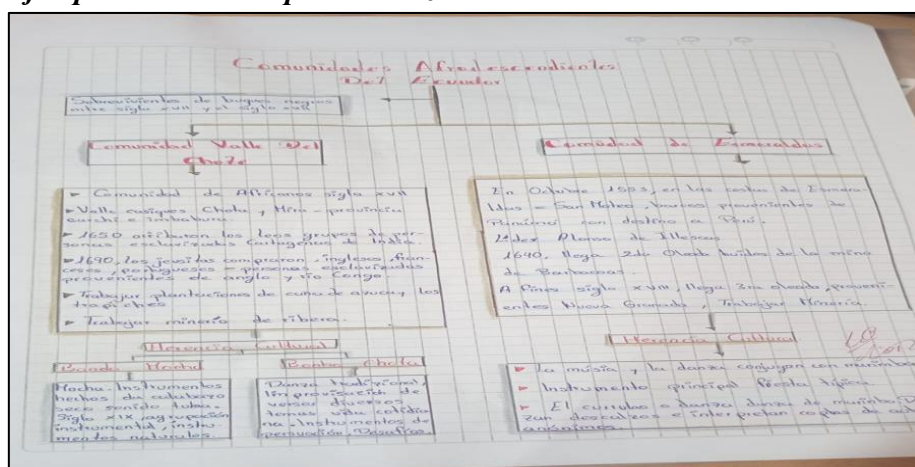 Comunidades Afrodescendientes
Del Ecuador
Sobrevivientes de buques negros
entre siglo XVII y el siglo XVII
Comunidad Valle Del
Chota
Comunidad de Africanos siglo XVII
Valle caciques Chota y Mira - provincia
carchi e imbabura.
1650 los grupos de per-
sonas esclavizadas Cartagena de India.
1690, los jesuitas compraron, ingleses, fran-
ceses, portugueses - personas esclavizadas
provenientes de anglo y río Congo
Trabajar plantaciones de caña de azucar y los
trapiches
Trabajar minería de ribera.
Herencia Cultural
Banda Mocha
Mocha. Instrumentos
hechos de calabazo
seco sonido tuba.
Siglo XIX agrupación
instrumental, instru-
mentos naturales.
Bomba Chota
Danza tradicional,
improvisación de
versos diversos
temas vida cotidia
na. Instrumentos de
percusión,
de Esmeraldas
En Octubre 1553, en las costas de Esmeral
ldas - San Mateo, barcos provenientes de
con destino a Perú.
Lider Alonso de Illescas
1640, llega 2da Oleada huidos de la mina
de Barbacoas.
A fines siglo XVIII, llega 3ra oleada, proveni-
entes Nueva Granada, Trabajar Minería.
Herencia Cultural
La música y la danza conjugan con marimba
Instrumento principal
El currulao o danza danza de marimba
descalzos e interpretan coplas de
anónimos.